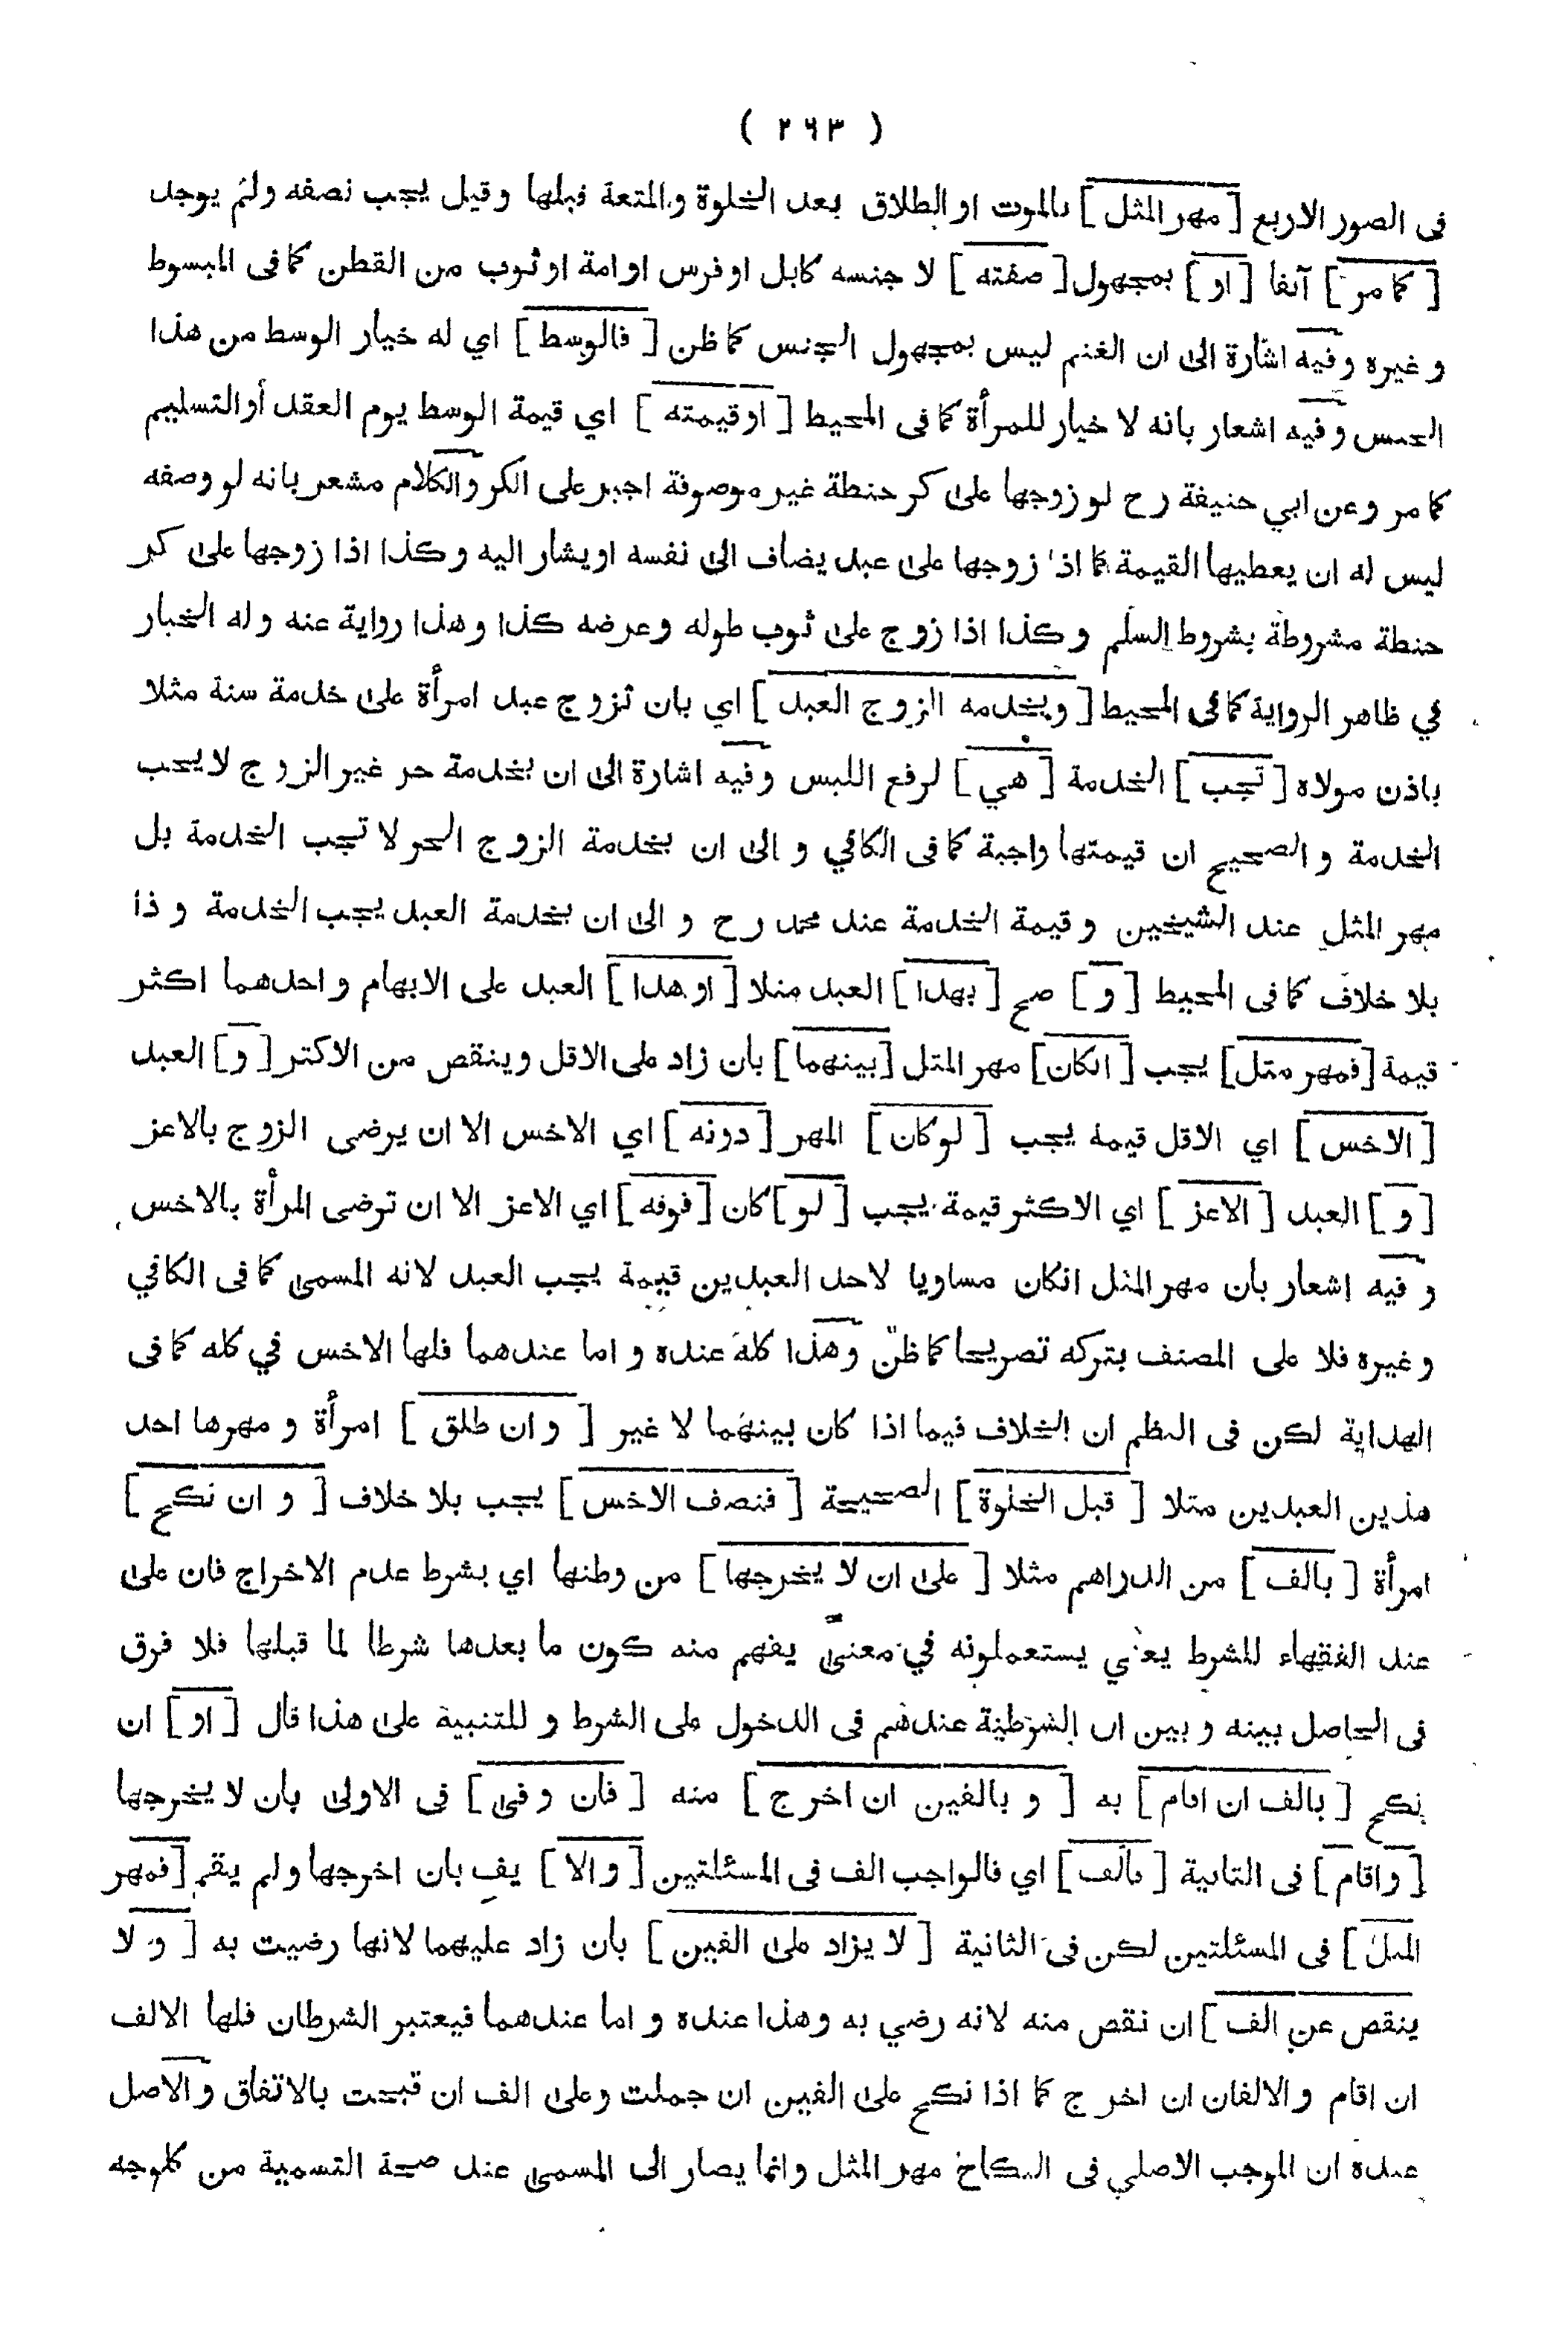 ( ٢٦٣ )
فى الصور الاربع [ مهر المثل ] بالموت او الطلاق بعد الخلوة والمتعة قبلها وقيل يجب نصفه ولم يوجد
[ كما مر ] آنفا [ او ] بمجهول [ صفته ] لا جنسه كابل او فرس او امة او ثوب من القطن كما فى المبسوط
وغيره وفيه اشارة الى ان الغنم ليس بمجهول الجنس كما ظن [ فالوسط ] اي له خيار الوسط من هذا
الجنس وفيه اشعار بانه لا خيار للمرأة كما فى المحيط [ او قيمته ] اي قيمة الوسط يوم العقد أو التسليم
كما مر وعن ابي حنيفة رح لو زوجها على كر حنطة غير موصوفة اجبر على الكر والكلام مشعر بانه لو وصفه
ليس له ان يعطيها القيمة كما اذا زوجها على عبد يضاف الى نفسه او يشار اليه وكذا اذا زوجها على كر
حنطة مشروطة بشروط السلم وكذا اذا زوج على ثوب طوله وعرضه كذا وهذا رواية عنه وله الخيار
في ظاهر الرواية كما فى المحيط [ وبخدمه الزوج العبد ] اي بان تزوج عبد امرأة على خدمة سنة مثلا
باذن مولاه [ تجب ] الخدمة [ هي ] لرفع اللبس وفيه اشارة الى ان بخدمة حر غير الزوج لا يجب
الخدمة والصحيح ان قيمتها واجبة كما فى الكافي والى ان بخدمة الزوج الحر لا تجب الخدمة بل
مهر المثل عند الشيخين وقيمة الخدمة عند محمد رح والى ان بخدمة العبد يجب الخدمة وذا
بلا خلاف كما فى المحيط [ و ] صح [ بهذا ] العبد مثلا [ او هذا ] العبد على الابهام واحدهما اكثر
قيمة [ فمهر مثل ] يجب [ انكان ] مهر المثل [ بينهما ] بأن زاد على الاقل وينقص من الاكثر [ و ] العبد
[ الاخس ] اي الاقل قيمة يجب [ لو كان ] المهر [ دونه ] اي الاخس الا ان يرضى الزوج بالاعز
[ و ] العبد [ الاعز ] اي الاكثر قيمة يجب [ لو ] كان [ فوقه ] اي الاعز الا ان ترضى المرأة بالاخس
وفيه اشعار بأن مهر المثل انكان مساويا لاحد العبدين قيمة يجب العبد لانه المسمى كما فى الكافي
وغيره فلا على المصنف بتركه تصريحا كما ظن وهذا كله عنده واما عندهما فلها الاخس في كله كما فى
الهداية لكن فى النظم ان الخلاف فيما اذا كان بينهما لا غير [ وان طلق ] امرأة ومهرها احد
هذين العبدين مثلا [ قبل الخلوة ] الصحيحة [ فنصف الاخس ] يجب بلا خلاف [ وان نكح ]
امرأة [ بالف ] من الدراهم مثلا [ على ان لا يخرجها ] من وطنها اي بشرط عدم الاخراج فان على
عند الفقهاء للشرط يعني يستعملونه في معنى يفهم منه كون ما بعدها شرطا لما قبلها فلا فرق
فى الحاصل بينه وبين ان الشرطية عندهم فى الدخول على الشرط وللتنبية على هذا قال [ او ] ان
نكح [ بالف ان اقام ] به [ وبالفين ان اخرج ] منه [ فأن وفى ] فى الاولى بأن لا يخرجها
[ واقام ] فى الثانية [ فالف ] اي فالواجب الف فى المسئلتين [ والا ] يف بان اخرجها ولم يقم [ فمهر
المثل ] فى المسئلتين لكن فى الثانية [ لا يزاد على الفين ] بأن زاد عليهما لانها رضيت به [ ولا
ينقص عن الف ] ان نقص منه لانه رضي به وهذا عنده واما عندهما فيعتبر الشرطان فلها الالف
ان اقام والالفان ان اخرج كما اذا نكح على الفين ان جملت وعلى الف ان قبحت بالاتفاق والاصل
عنده ان الموجب الاصلي فى النكاح مهر المثل وانما يصار الى المسمى عند صحة التسمية من كلوجه